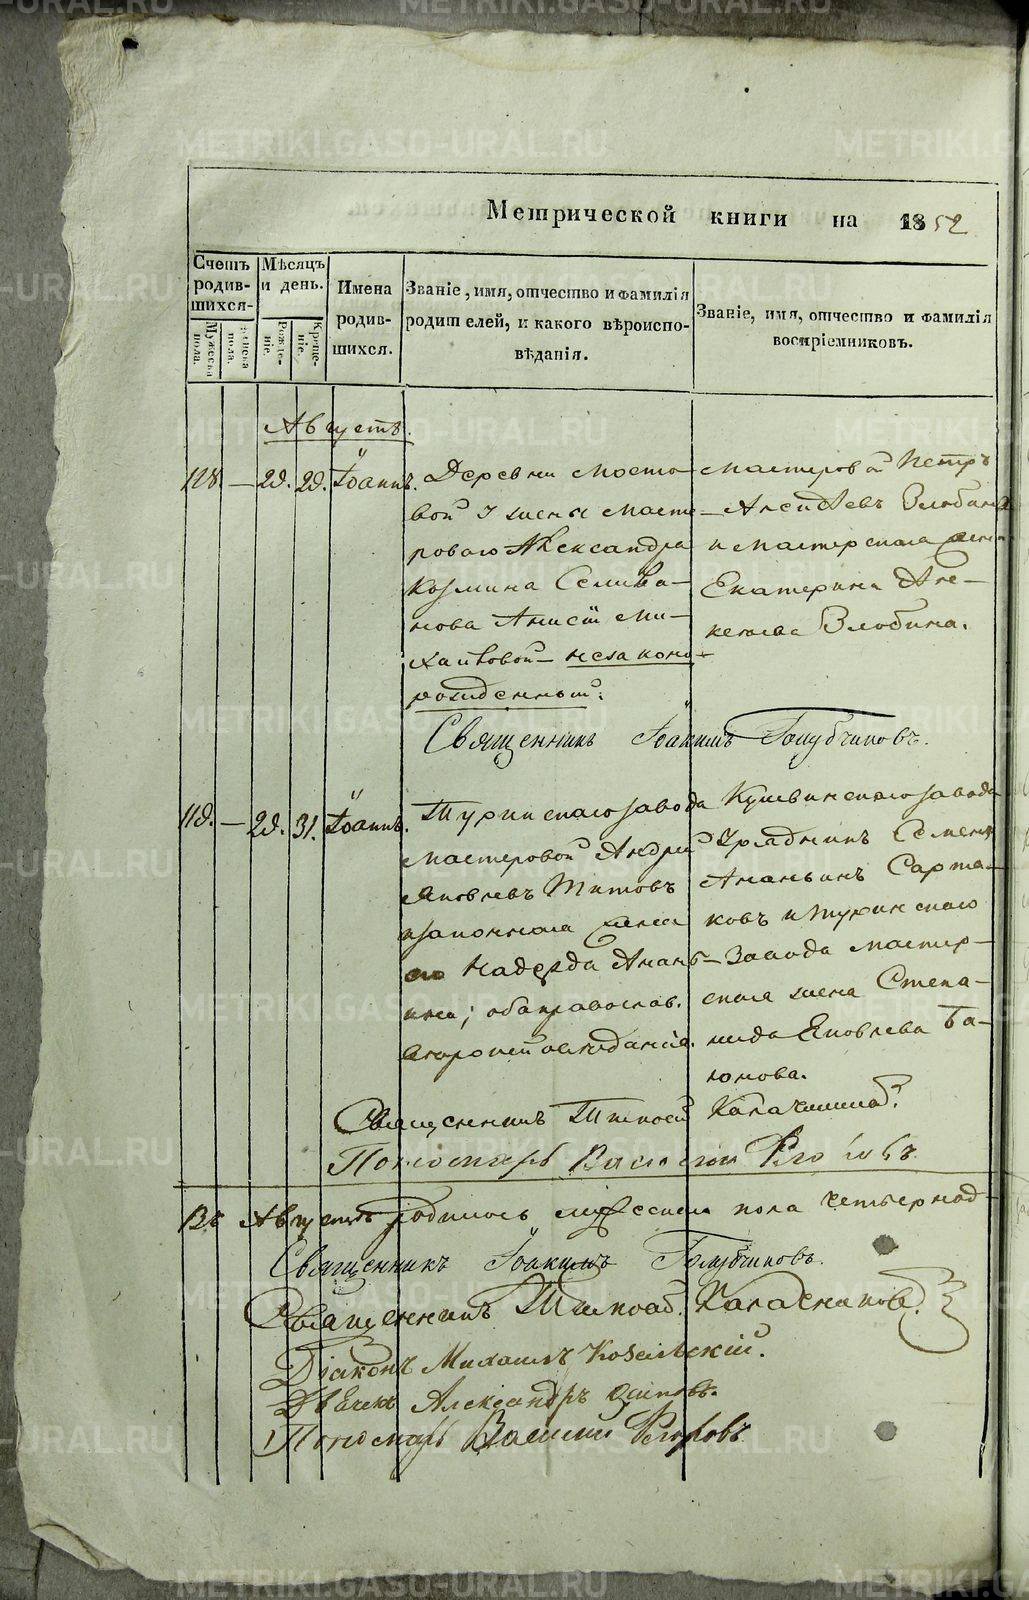 Метрической книги на 1852
Счетъ родив-шихся.
Мужеска пола.
Женска пола.
Мѣсяцъ и день.
Рожде-ніе.
Креще-ніе.
Имена родив-шихся.
Званіе, имя, отчество и фамилія
родителей, и какого вѣроиспо-
вѣданія.
Званіе, имя, отчество и фамилія
воспріемниковъ.
Августъ.
118 — 29. 29. Іоаннъ.
Деревни Мосто-
вой жены масте-
роваго Александра
Козмина Селива-
нова Анисіи Ми-
хайловой — незаконо-
рожденный.
Мастеровой Петръ
Злобинъ
и мастерская жена
Екатерина Але-
ксѣева Злобина.
Священникъ Іоакимъ Голубчиковъ.
119. — 29. 31. Іоаннъ.
Туринскаго завода
мастеровой Андрей
Яковлевъ Титовъ
и законная жена
его Надежда Анань-
ина; оба православ.
Кушвинскаго завода
Урядникъ Семенъ
Ананьинъ Сарта-
ковъ и Туринскаго
Завода мастер-
ская жена Степа-
нида Яковлева
Священникъ Тимофей
Пономарь Василій
Въ Августѣ родилось мужеска пола четырнад-
Священникъ Іоакимъ Голубчиковъ.
Священникъ Тимофей Калашниковъ.
Діаконъ Михаилъ Козельскій.
Дьячекъ Александръ Осиповъ.
Пономарь Василій Флоровъ
METRIKI.GASO-URAL.RU